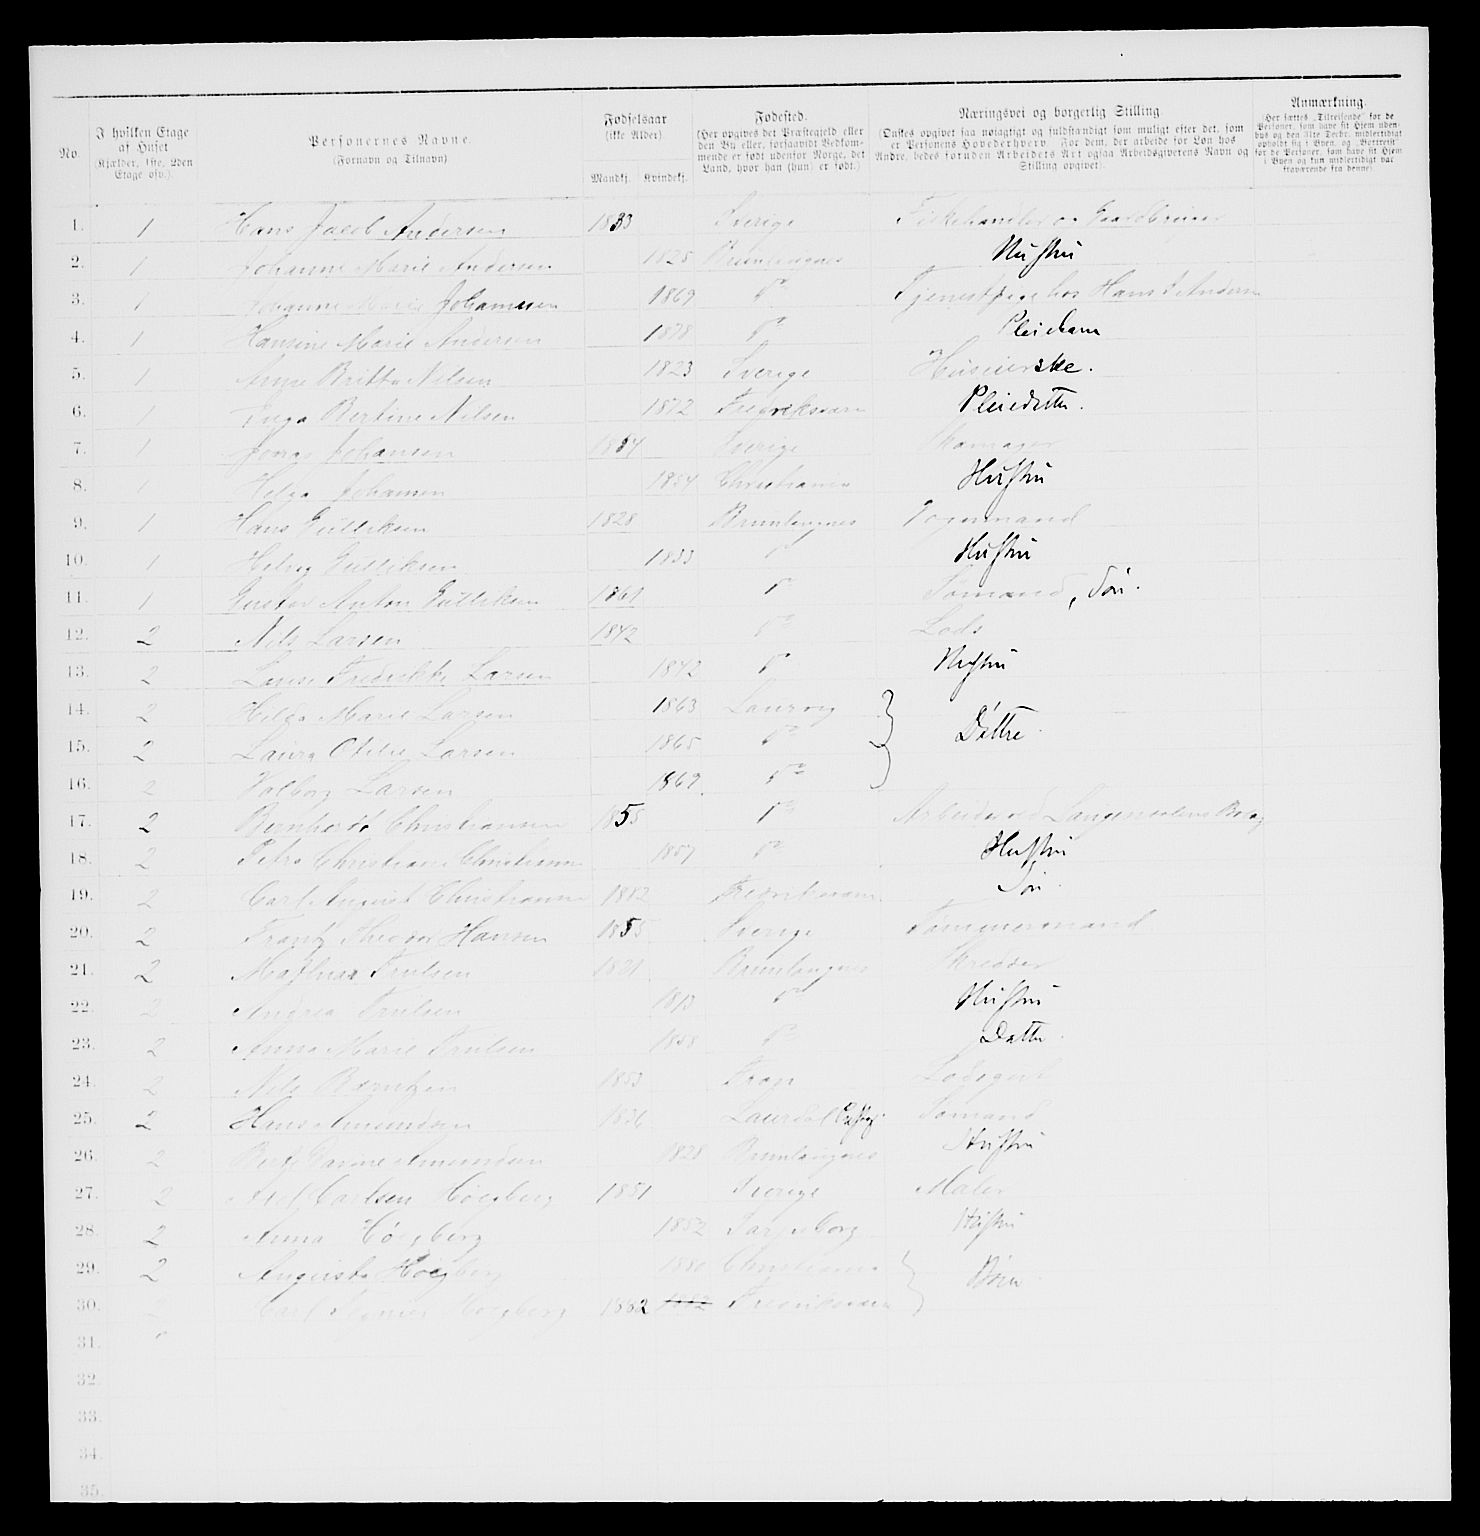 No.
I hvilken Etage af Huset (Kjælder, 1ste, 2den Etage osv.).
Personernes Navne. (Fornavn og Tilnavn)
Fødselsaar (ikke Alder). Mandkj. Kvindekj.
Fødested. (Her opgives det Præstegjeld eller den By eller, forsaavidt Vedkommende er født udenfor Norge, det Land, hvor han (hun) er født.)
Næringsvei og borgerlig Stilling. (Ønskes opgivet saa nøiagtigt og fuldstændigt som muligt efter det, som er Personens Hovederhverv. For dem, der arbeide for Løn hos Andre, bedes foruden Arbeidets Art ogsaa Arbeidsgiverens Navn og Stilling opgivet).
Anmærkning. (Her sættes „Tilreisende" for de Personer, som have sit Hjem udenbys og den 31te Decbr. midlertidigt opholdt sig i Byen, og „Bortreist" for de Personer, som have sit Hjem i Byen og kun midlertidigt var fraværende fra denne).
1. 1 Hans Jacob Andersen 1833 Sverige Fiskehandler og Gaardbruger
2. 1 Johanne Marie Andersen 1825 Brunlangnes Hustru
3. 1 Johanne Marie Johannesen 1869 do Tjenestpige hos Hans J Andersen
4. 1 Hansine Marie Andersen 1878 do Pleiebarn
5. 1 Anne Britta Nilsen 1823 Sverige Huseierske.
6. 1 Inga Bertine Nilsen 1872 Fredriksværn Pleiedatter.
7. 1 Johansen 1854 Sverige Skomager
8. 1 Helga Johansen 1854 Christiania Hustru
9. 1 Hans Gulliksen 1828 Brunlangnes Vognmand
10. 1 Helvig Gulliksen 1833 do Hustru
11. 1 Gustav Anton Gulliksen 1861 do Sømand, Søn.
12. 2 Nils Larsen 1842 do Lods
13. 2 Louise Fredrikke Larsen 1842 do Hustru
14. 2 Hilda Marie Larsen 1863 Laurvig } Døttre.
15. 2 Laura Otilie Larsen 1865 do
16. 2 Valborg Larsen 1869. do }
17. 2 Bernhardt Christiansen 1855 do Arbeider ved
18. 2 Petra Christiane Christiansen 1857 do Hustru
19. 2 Carl August Christiansen 1882 Fredriksværn. Søn.
20. 2 Frantz Theodor Hansen 1855 Sverige Tømmermand
21. 2 Mathias Trulsen 1821 Brunlangnes Skredder
22. 2 Andrea Trulsen 1813 do Hustru
23. 2 Anna Marie Trulsen 1858 do Datter.
24. 2 Nils Berntzen 1853 Lodsgut
25. 2 Hans Amundsen 1836 Sømand
26. 2 Amundsen 1828 Brunlangnes Hustru
27. 2 Carlsen Høegberg 1851 Sverige Maler
28. 2 Anna Høegberg 1852 Sarpsborg Hustru
29. 2 Augusta Høegberg 1880 Christiania } Børn.
30. 2 Carl Høegberg 1882 1882 Fredriksværn
31.
32.
33.
34.
35.